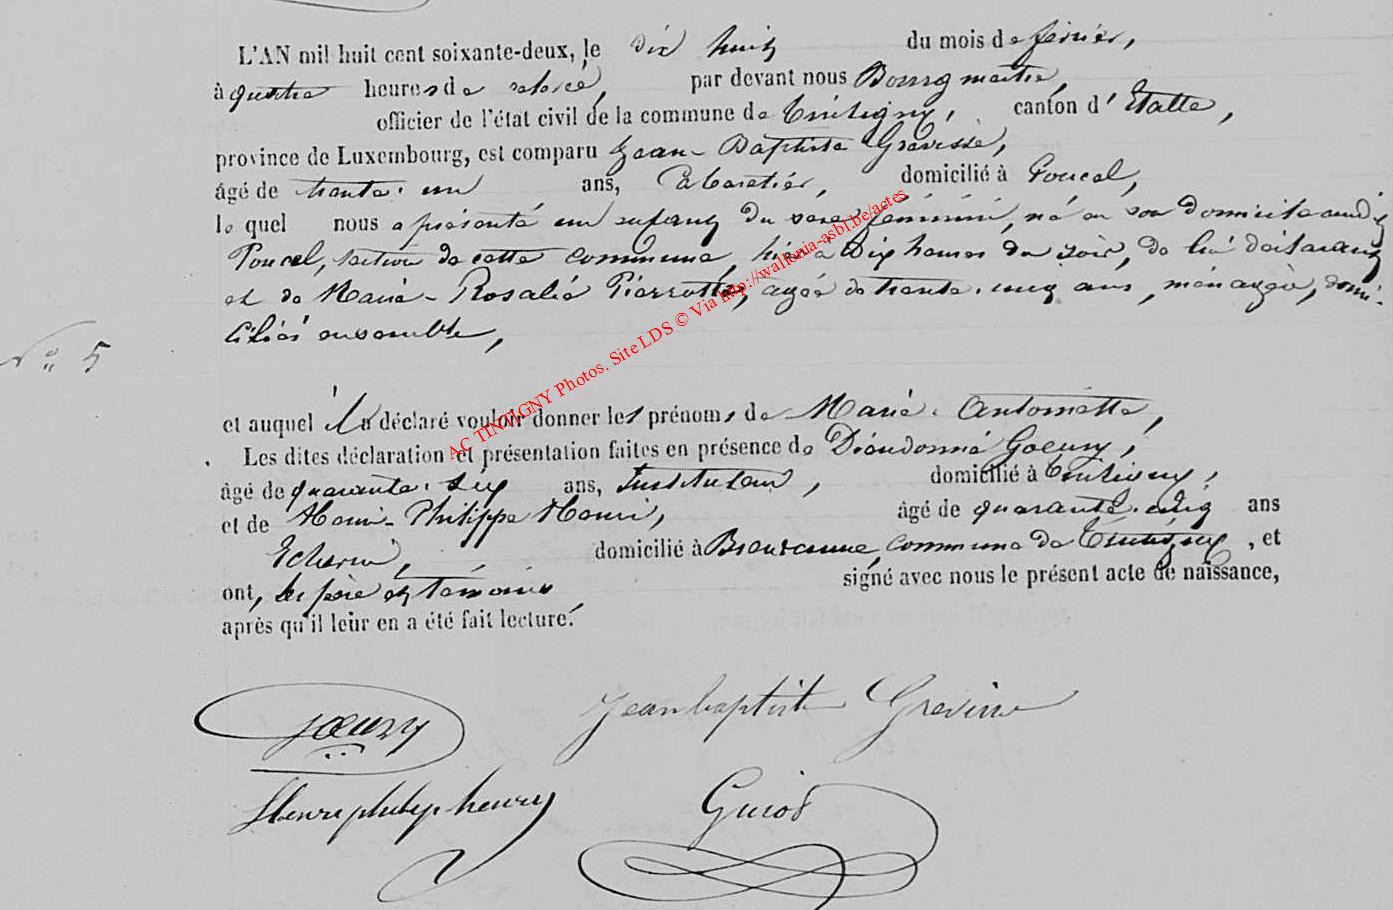 L'AN mil huit cent soixante-deux, le dix huit du mois de février,
à quatre heures de relevé, par devant nous Bourgmestre,
officier de l'état civil de la commune de Tintigny, canton d'Etalle,
province de Luxembourg, est comparu Jean-Baptiste Grévisse,
âgé de trente-un ans, Cabaretier, domicilié à Poncel,
le quel nous a présenté un enfant du sexe féminin, né en son domicile audit
Poncel, section de cette commune, hier à dix heures du soir, de lui déclarant
et de Marie-Rosalie Pierrotte, agée de trente-cinq ans, ménagère, domi-
ciliés ensemble,
N° 5
et auquel il a déclaré vouloir donner les prénoms de Marie-Antoinette,
Les dites déclaration et présentation faites en présence de Dieudonné Goeury,
âgé de quarante-six ans, Instituteur, domicilié à Tintigny,
et de Henri-Philippe Henri, âgé de quarante-cinq ans
Echevin, domicilié à Breuvanne, commune de Tintigny, et
ont, les père et témoins signé avec nous le présent acte de naissance,
après qu'il leur en a été fait lecture.
Goeury Jeanbaptiste Grevisse
Henri philip henry Guiot
AC TINTIGNY Photos. Site LDS © Via http://wallonia-asbl.be/actes